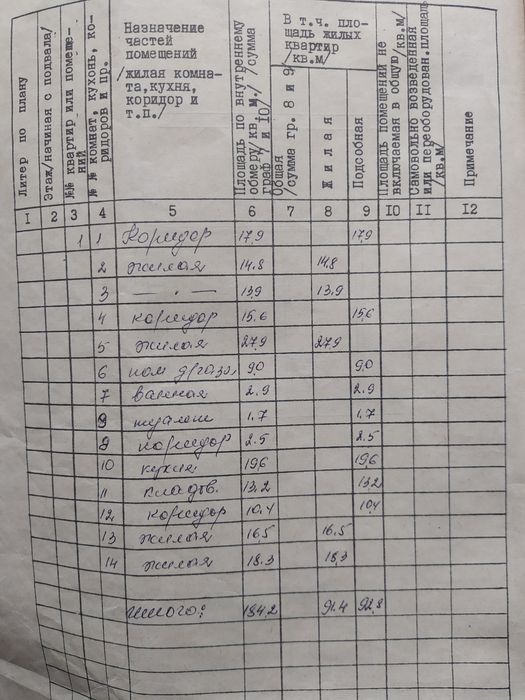 Литер по плану
Этаж/начиная с подвала/
№№ квартир или помеще-
ний
№ № комнат, кухонь, ко-
ридоров и пр.
Назначение
частей
помещений
/жилая комна-
та, кухня,
коридор и
т.п./
Площадь по внутреннему
обмеру кв. м./ /сумма
граф 7 и 10/
В т.ч. пло-
щадь жилых
квартир
/кв.м/
Общая
/сумма гр. 8 и 9/
Жилая
Подсобная
Площадь помещений не
включаемая в общую/кв.м/
Самовольно возведенная
или переоборудован.площадь
/кв.м/
Примечание
I 2 3 4 5 6 7 8 9 IO II I2
1 1 Коридор 17,9 17,9
2 жилая 14.8 14.8
3 — · — 13,9 13,9
4 коридор 15,6 15,6
5 жилая 27,9 27,9
6 9,0 9,0
7 ванная 2.9 2.9
8 туалет 1.7 1.7
9 коридор 2.5 2.5
10 кухня 19,6 19,6
11 кладов. 13,2 13,2
12 коридор 10,4 10,4
13 жилая 16,5 16,5
14 жилая 18.3 18,3
Итого: 184,2 91.4 92,8